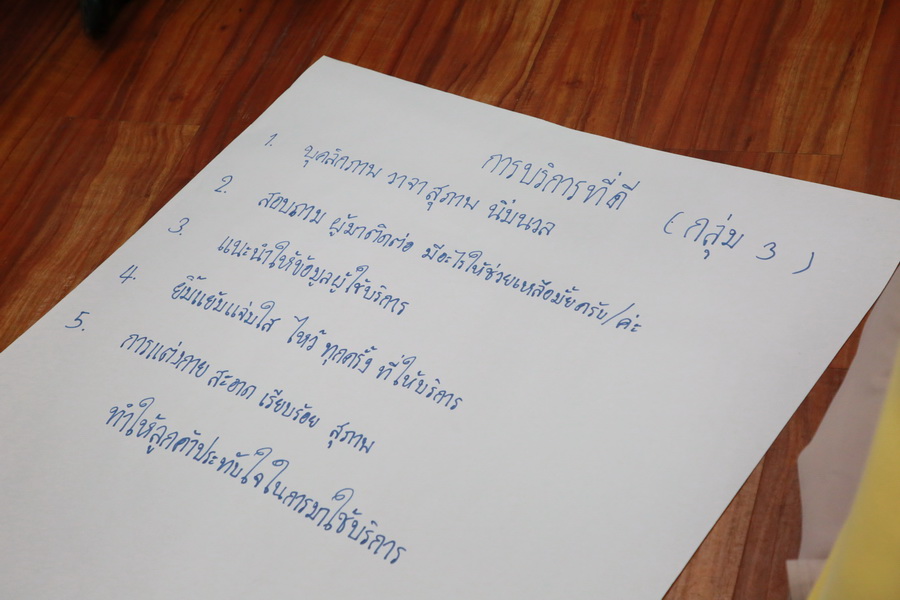 การบริการที่ดี (กลุ่ม 3)
1. บุคลิกภาพ วาจา สุภาพ นิ่มนวล
2. สอบถาม ผู้มาติดต่อ มีอะไรให้ช่วยเหลือมั้ยครับ/ค่ะ
3. แนะนำให้ข้อมูลผู้ใช้บริการ
4. ยิ้มแย้มแจ่มใส ไหว้ ทุกครั้ง ที่ให้บริการ
5. การแต่งกาย สะอาด เรียบร้อย สุภาพ
ทำให้ลูกค้าประทับใจในการมาใช้บริการ